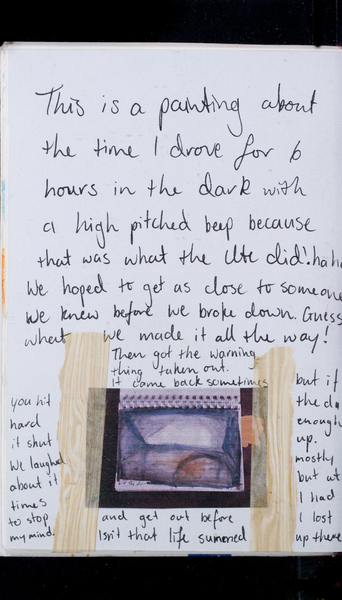 This is a painting about
the time I drove for 6
hours in the dark with
a high pitched beep because
that was what the Ute did! haha
We hoped to get as close to someone
we knew before we broke down. Guess
what we made it all the way!
Then got the warning
thing taken out.
It came back sometimes but if
you hit the
hard enough
it shut up.
We laughed mostly
about it but at
times I had
to stop and get out before I lost
my mind. Isn't that life summed up there